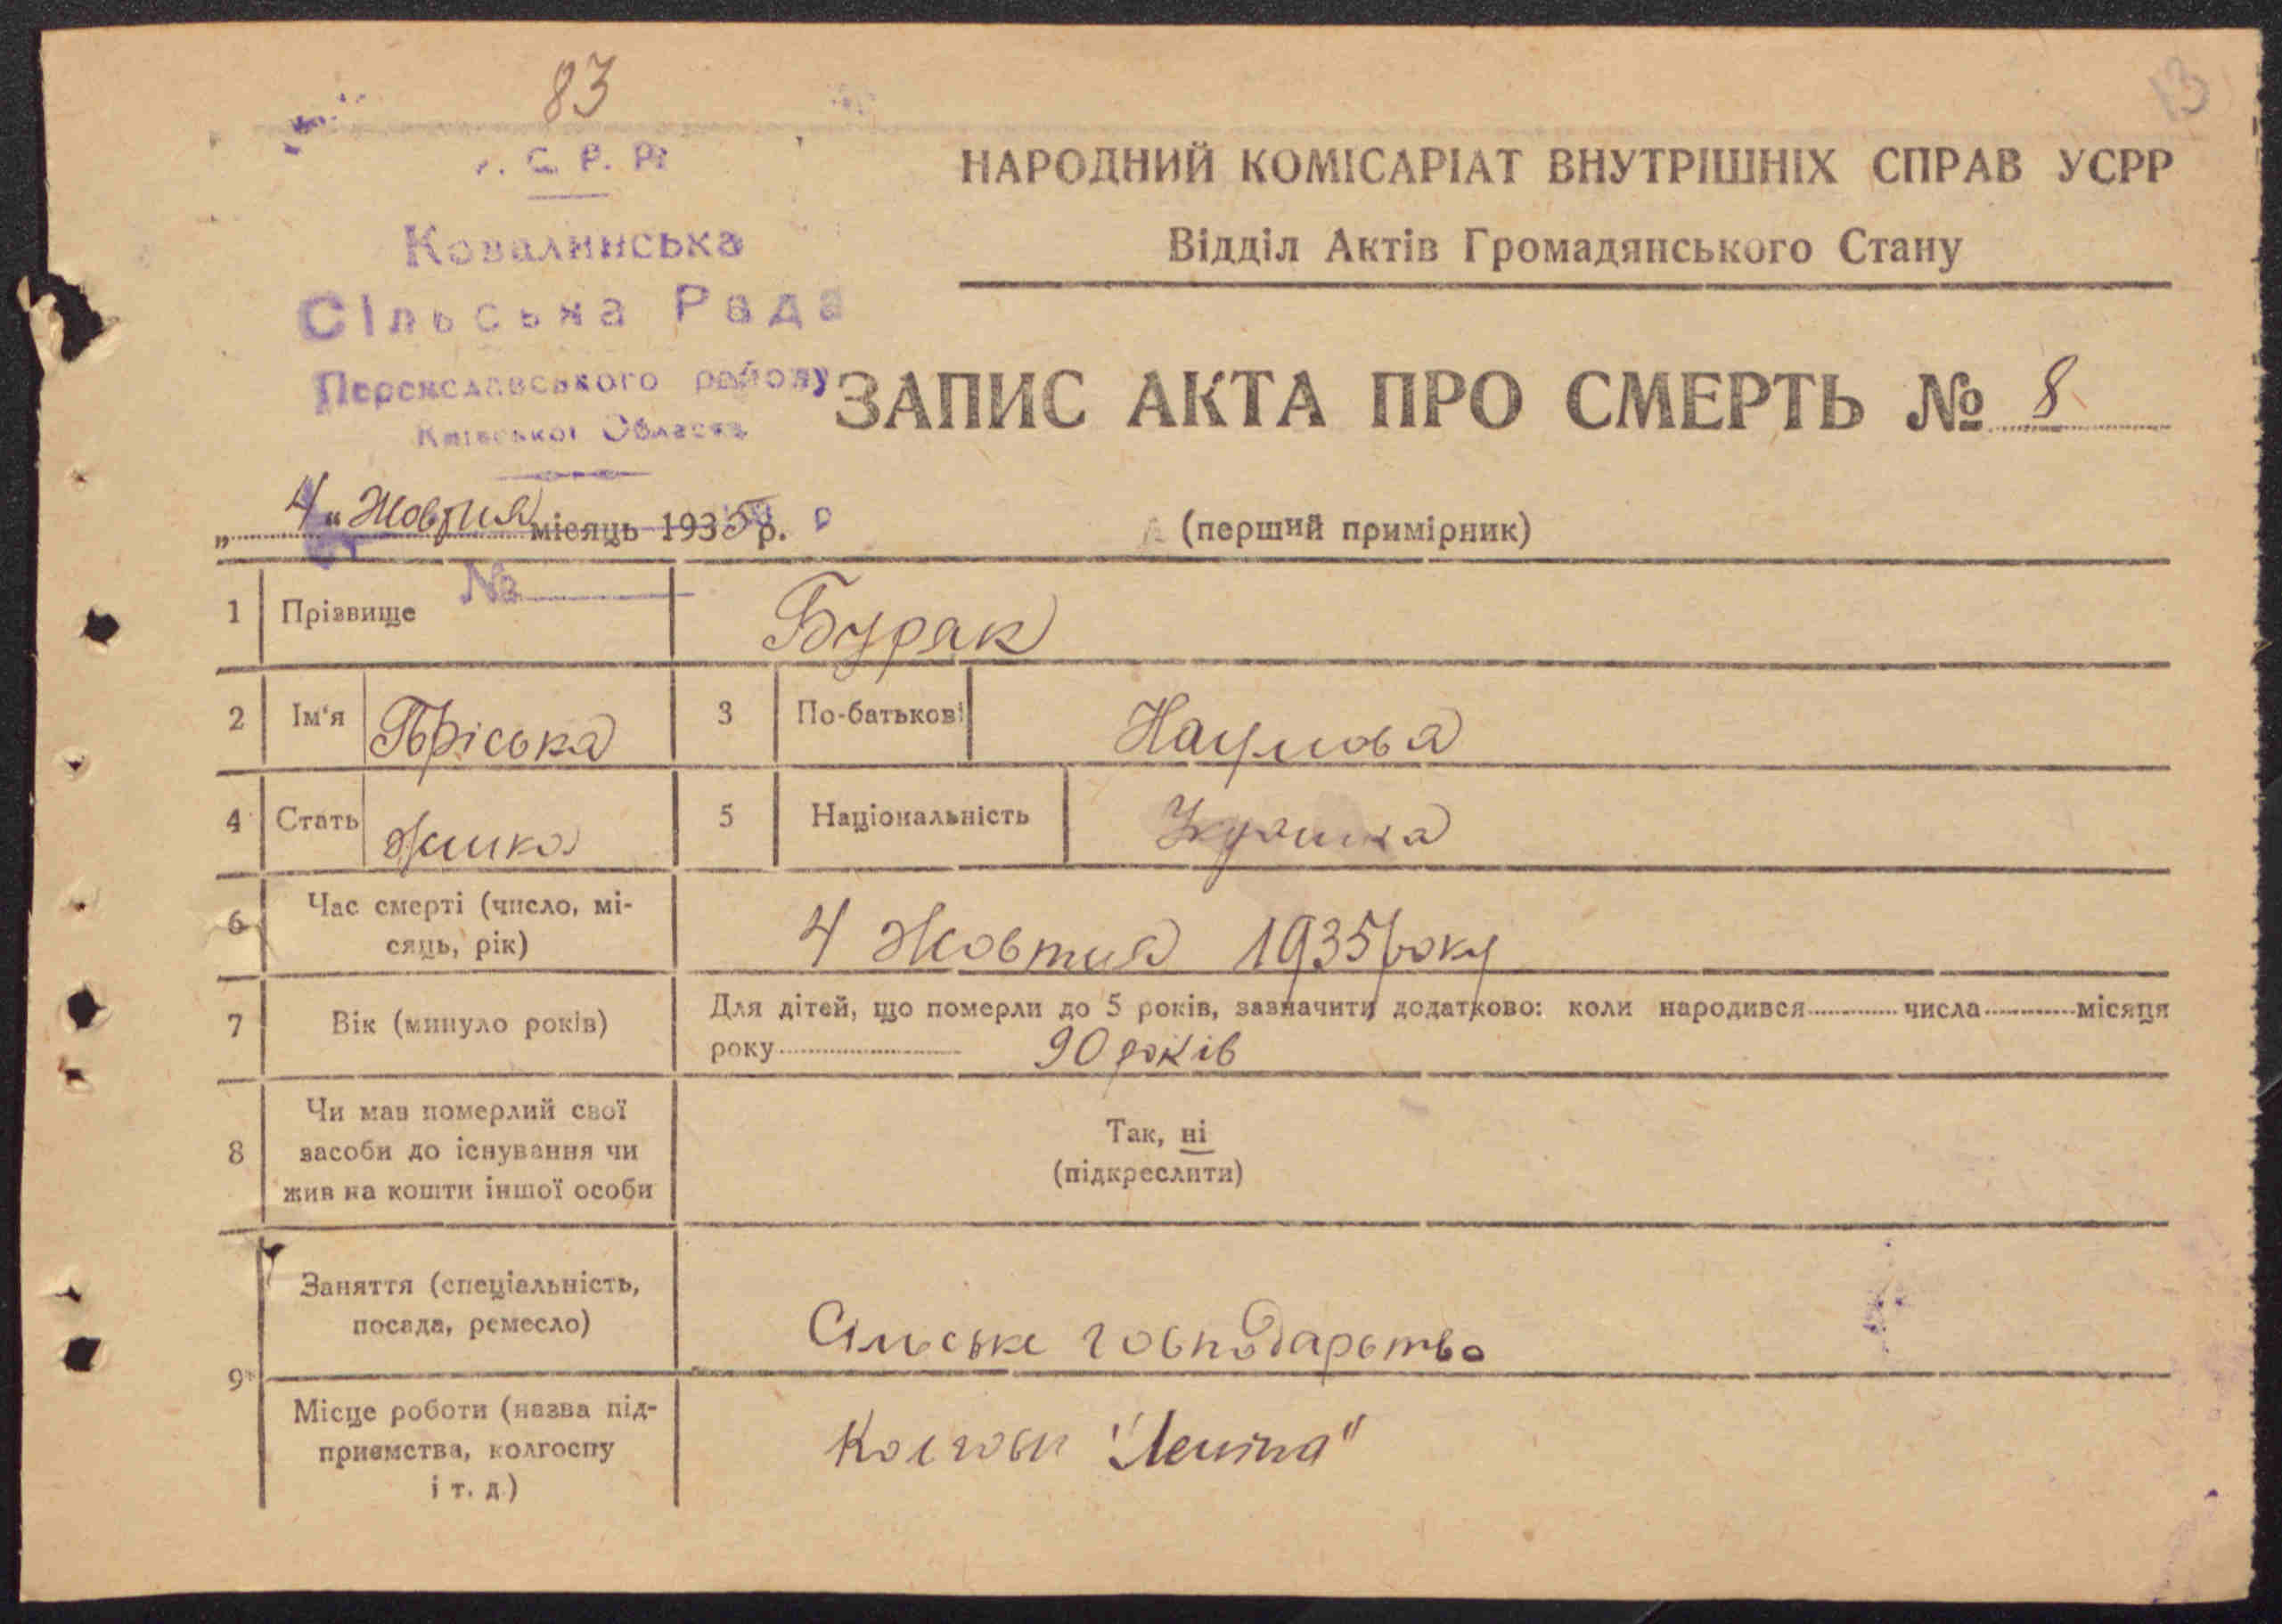 83
13
У. С. Р. Р.
Ковалинська
Сільська Рада
Переяславського району
Київської Области
НАРОДНИЙ КОМІСАРІАТ ВНУТРІШНІХ СПРАВ УСРР
Відділ Актів Громадянського Стану
ЗАПИС АКТА ПРО СМЕРТЬ № 8
„ 4 “ Жовтня місяць 1935 р.
(перший примірник)
№
1 Прізвище Бурак
2 Ім‘я Пріська 3 По-батькові Наумова
4 Стать жінка 5 Національність Українка
6 Час смерті (число, мі-
сяць, рік) 4 Жовтня 1935 року
7 Вік (минуло років) Для дітей, що померли до 5 років, зазначити додатково: коли народився числа місяця
року 90 років
8 Чи мав померлий свої
засоби до існування чи
жив на кошти іншої особи
Так, ні
(підкреслити)
9 Заняття (спеціальність,
посада, ремесло) Сільське господарство
Місце роботи (назва під-
приємства, колгоспу
і т. д.) Колгосп "Леніна"